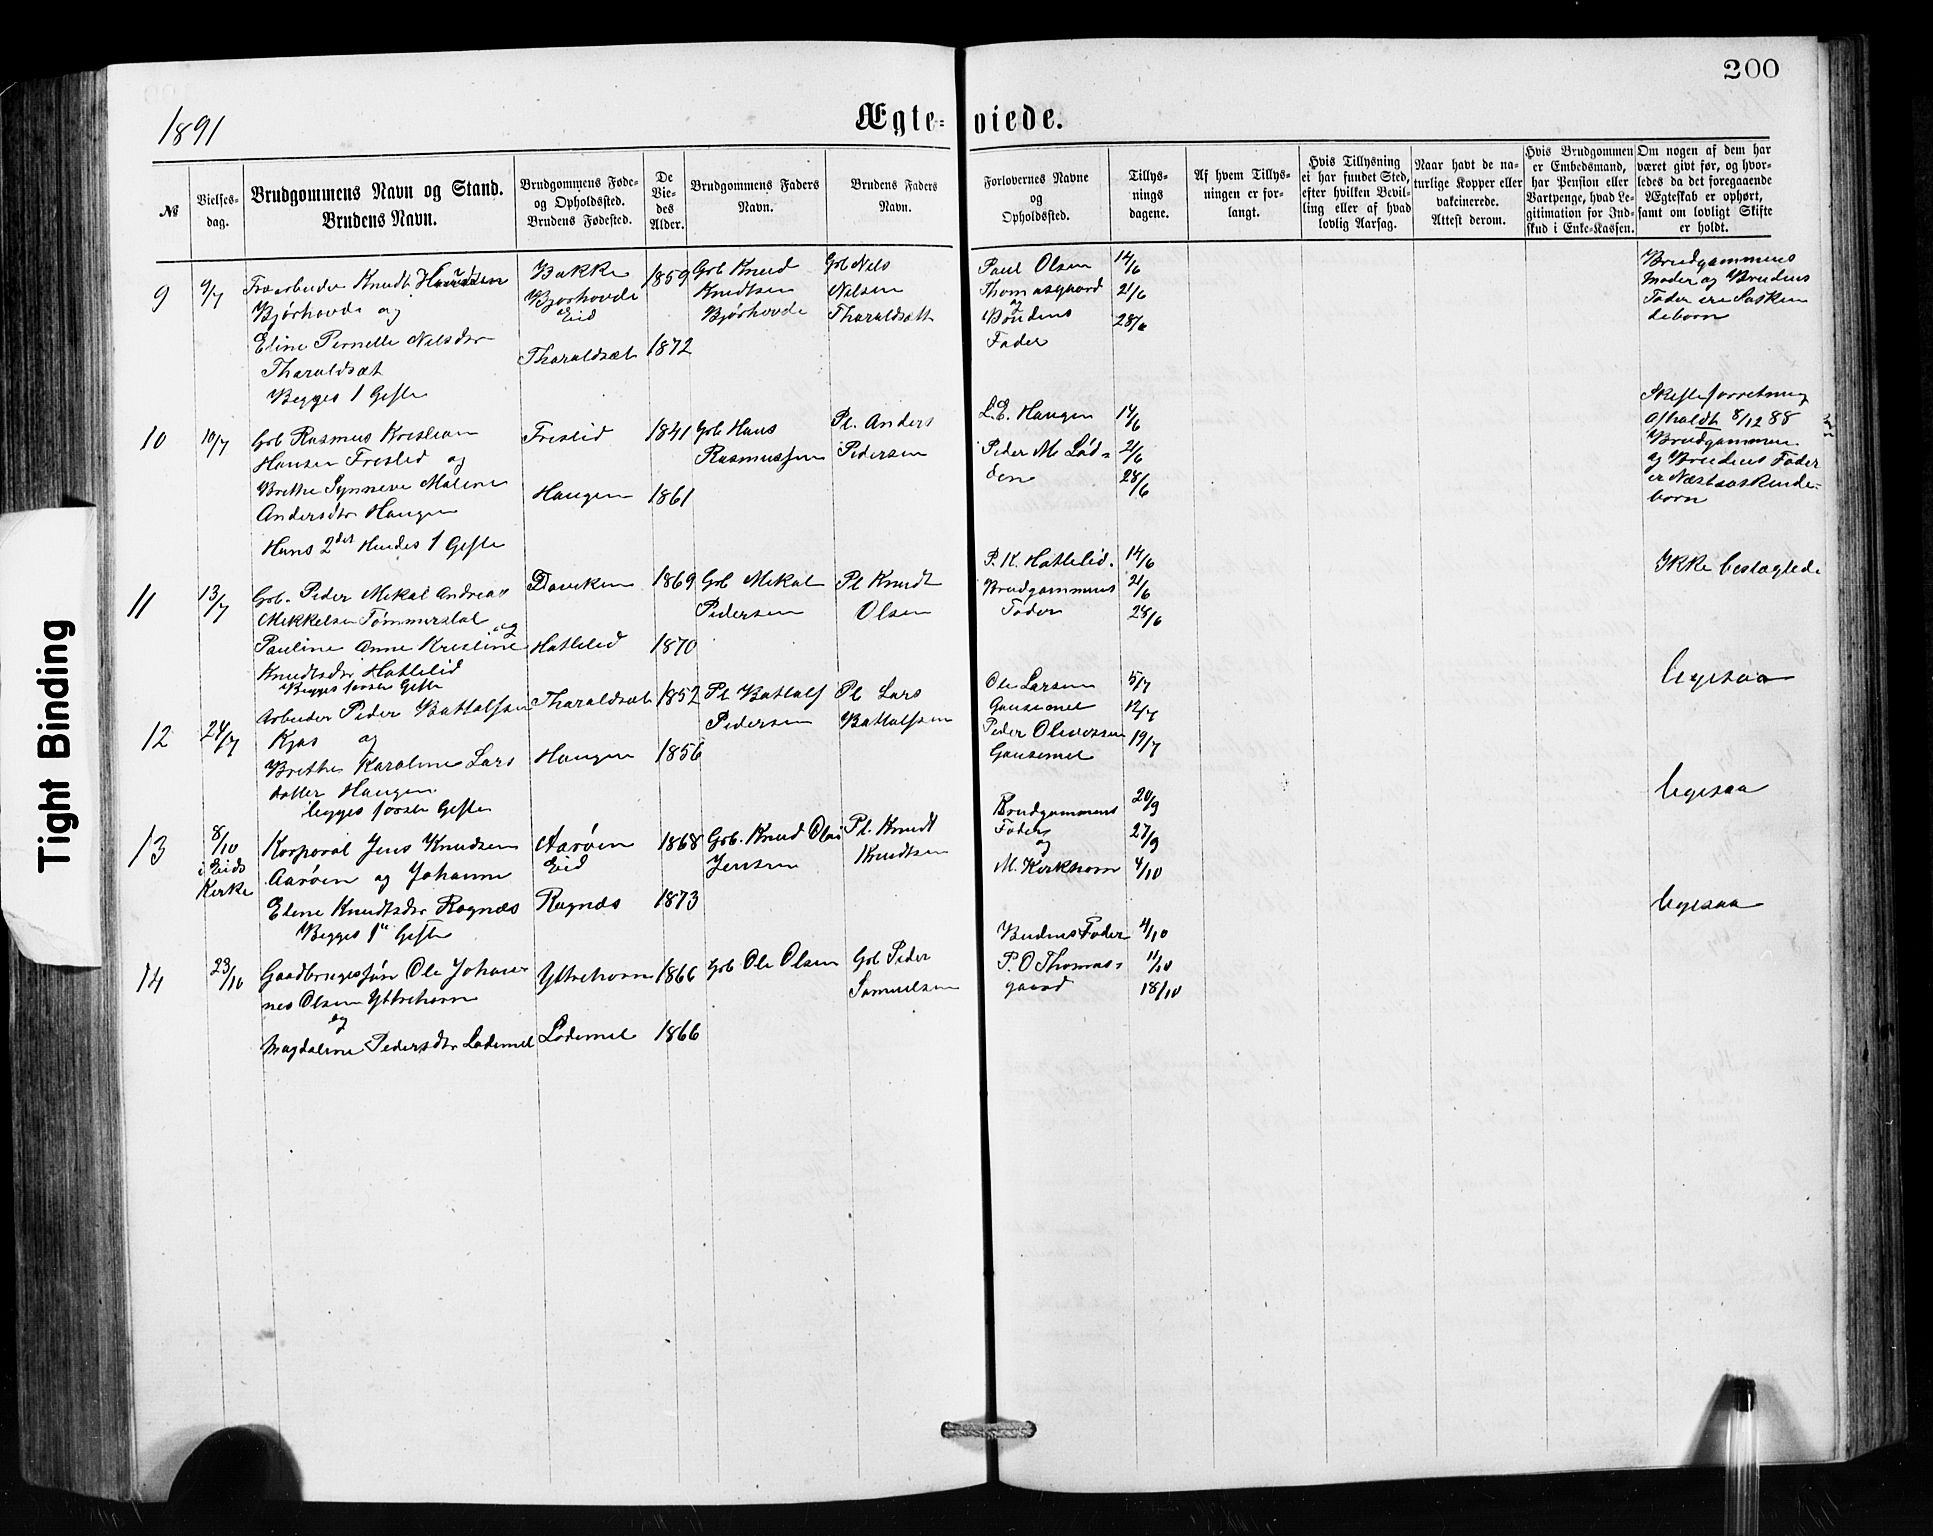 200
1891
Ægte-viede.
№
Vielses-
dag.
Brudgommens Navn og Stand.
Brudens Navn.
Brudgommens Føde-
og Opholdssted.
Brudens Fødested.
De
Vie-
des
Alder.
Brudgommens Faders
Navn.
Brudens Faders
Navn.
Forlovernes Navne
og
Opholdssted.
Tillys-
nings
dagene.
Af hvem Tillys-
ningen er for-
langt.
Hvis Tillysning
ei har fundet Sted,
efter hvilken Bevil-
ling eller af hvad
lovlig Aarsag.
Naar havt de na-
turlige Kopper eller
vakcinerede.
Attest derom.
Hvis Brudgommen
er Embedsmand,
har Pension eller
Vartpenge, hvad Le-
gitimation for Ind-
skud i Enke-Kassen.
Om nogen af dem har
været givt før, og hvor-
ledes da det foregaaende
Ægteskab er ophørt,
samt om lovligt Skifte
er holdt.
9
9/7
Knudt
Bjørhovde og
Eline Pernelle Nilsdtr
Tharaldsæt
Begges 1 Gifte
Bakke
Bjørhovde
Eid
Tharaldsæt
1859
1872
Grb Knud
Knudtsen
Bjørhovde
Grb Nils
Nilsen
Tharaldsætt
Paul Olsen
Thomasgaard
og
Brudens
Fader
14/6
21/6
28/6
Brudgommens
Moder og Brudens
Fader ere Søsken
deborn
10
10/7
Grb Rasmus Kristian
Hansen Frislid og
Brithe Synneve Malene
Andersdtr Haugen
Hans 2der Hendes 1 Gifte
Frislid
Haugen
1841
1861
Grb Hans
Rasmussen
Pl. Anders
Pedersen
L. E. Haugen
Peder M. Lød-
em
14/6
21/6
28/6
Skifteforretning
Afholdt 8/12 88
Brudgommen
og Brudens Fader
er Næstsøskende-
born
11
13/7
Grb. Peder Mikal Andreas
Mikkelsen Tømmerstøl
og
Pauline Anne Kristine
Knudtsdtr Hatlelid
Begges første Gifte
Daviken
Hatlelid
1869
1870
Grb Mikal
Pedersen
Pl Knudt
Olsen
P. K. Hatlelid.
Brudgommens
Fader
14/6
21/6
28/6
Ikke beslægtede
12
24/7
Arbeider Peder Battalfsen
Kjøs og
Brithe Karoline Lars
datter Haugen
begges første Gifte
Tharaldsæt
Haugen
1852
1856
Pl Battalf
Pedersen
Pl Lars
Battalfsen
Ole Larsen
Gausemel
Peder
Gausemel
5/7
12/7
19/7
ligesaa
13
8/10
i Eids
Kirke
Korporal Jens Knudsen
Aarøen og Johanne
Eline Knudtsdtr Rognæs
Begges 1te Gifte
Aarøen
Eid
Rognæs
1868
1873
Grb. Knud Olai
Jensen
Pl. Knudt
Knudtsen
Brudgommens
Fader
og
M. Kirkhorn
20/9
27/9
4/10
ligesaa
14
23/10
Gaardbrugersøn Ole Johan
nes Olsen Yttrehorn
og
Magdalene Pedersdtr Lødemel
Yttrehorn
Lødemel
1866
1866
Grb Ole Olsen
Grb Peder
Samuelsen
Brudens Fader
P. O Thomas-
gaard
4/10
11/10
18/10
ligesaa
Tight Binding